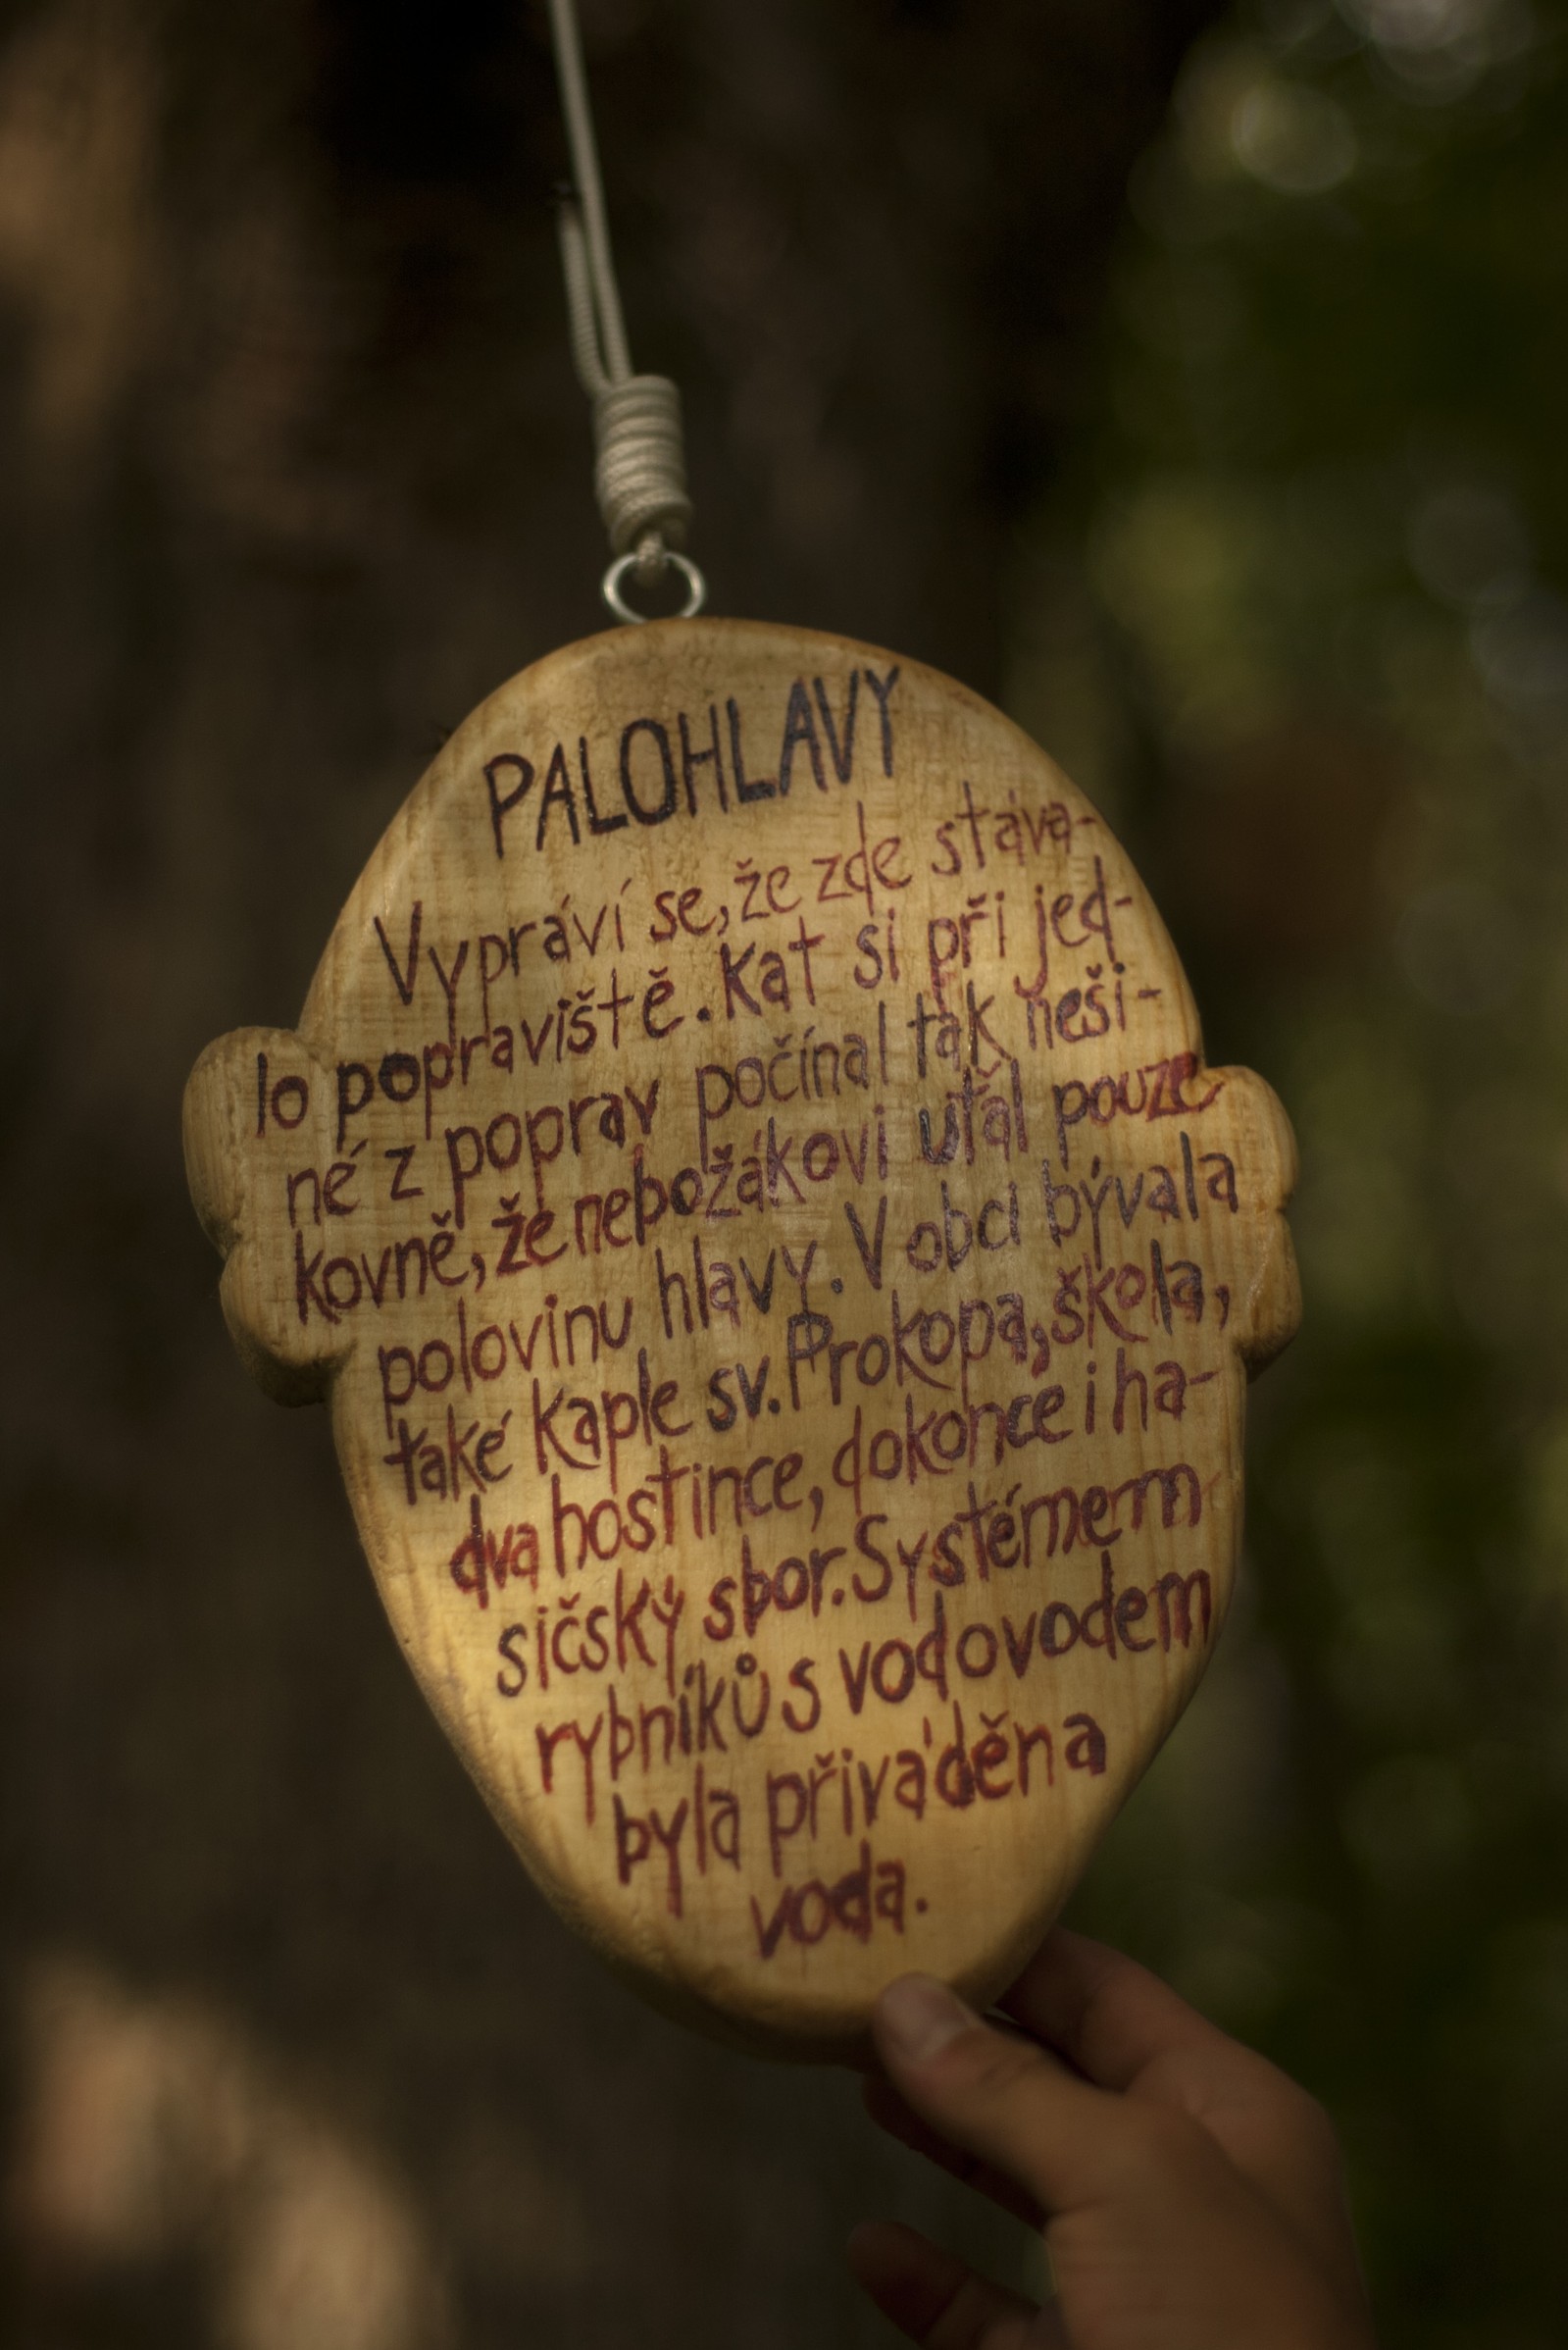 PALOHLAVY
Vypráví se, že zde stáva-
lo popraviště. Kat si při jed-
né z poprav počínal tak neši-
kovně, že nebožákovi uťal pouze
polovinu hlavy. V obci bývala
také kaple sv. Prokopa, škola,
dva hostince, dokonce i ha-
sičský sbor. Systémem
rybníků s vodovodem
byla přiváděna
voda.